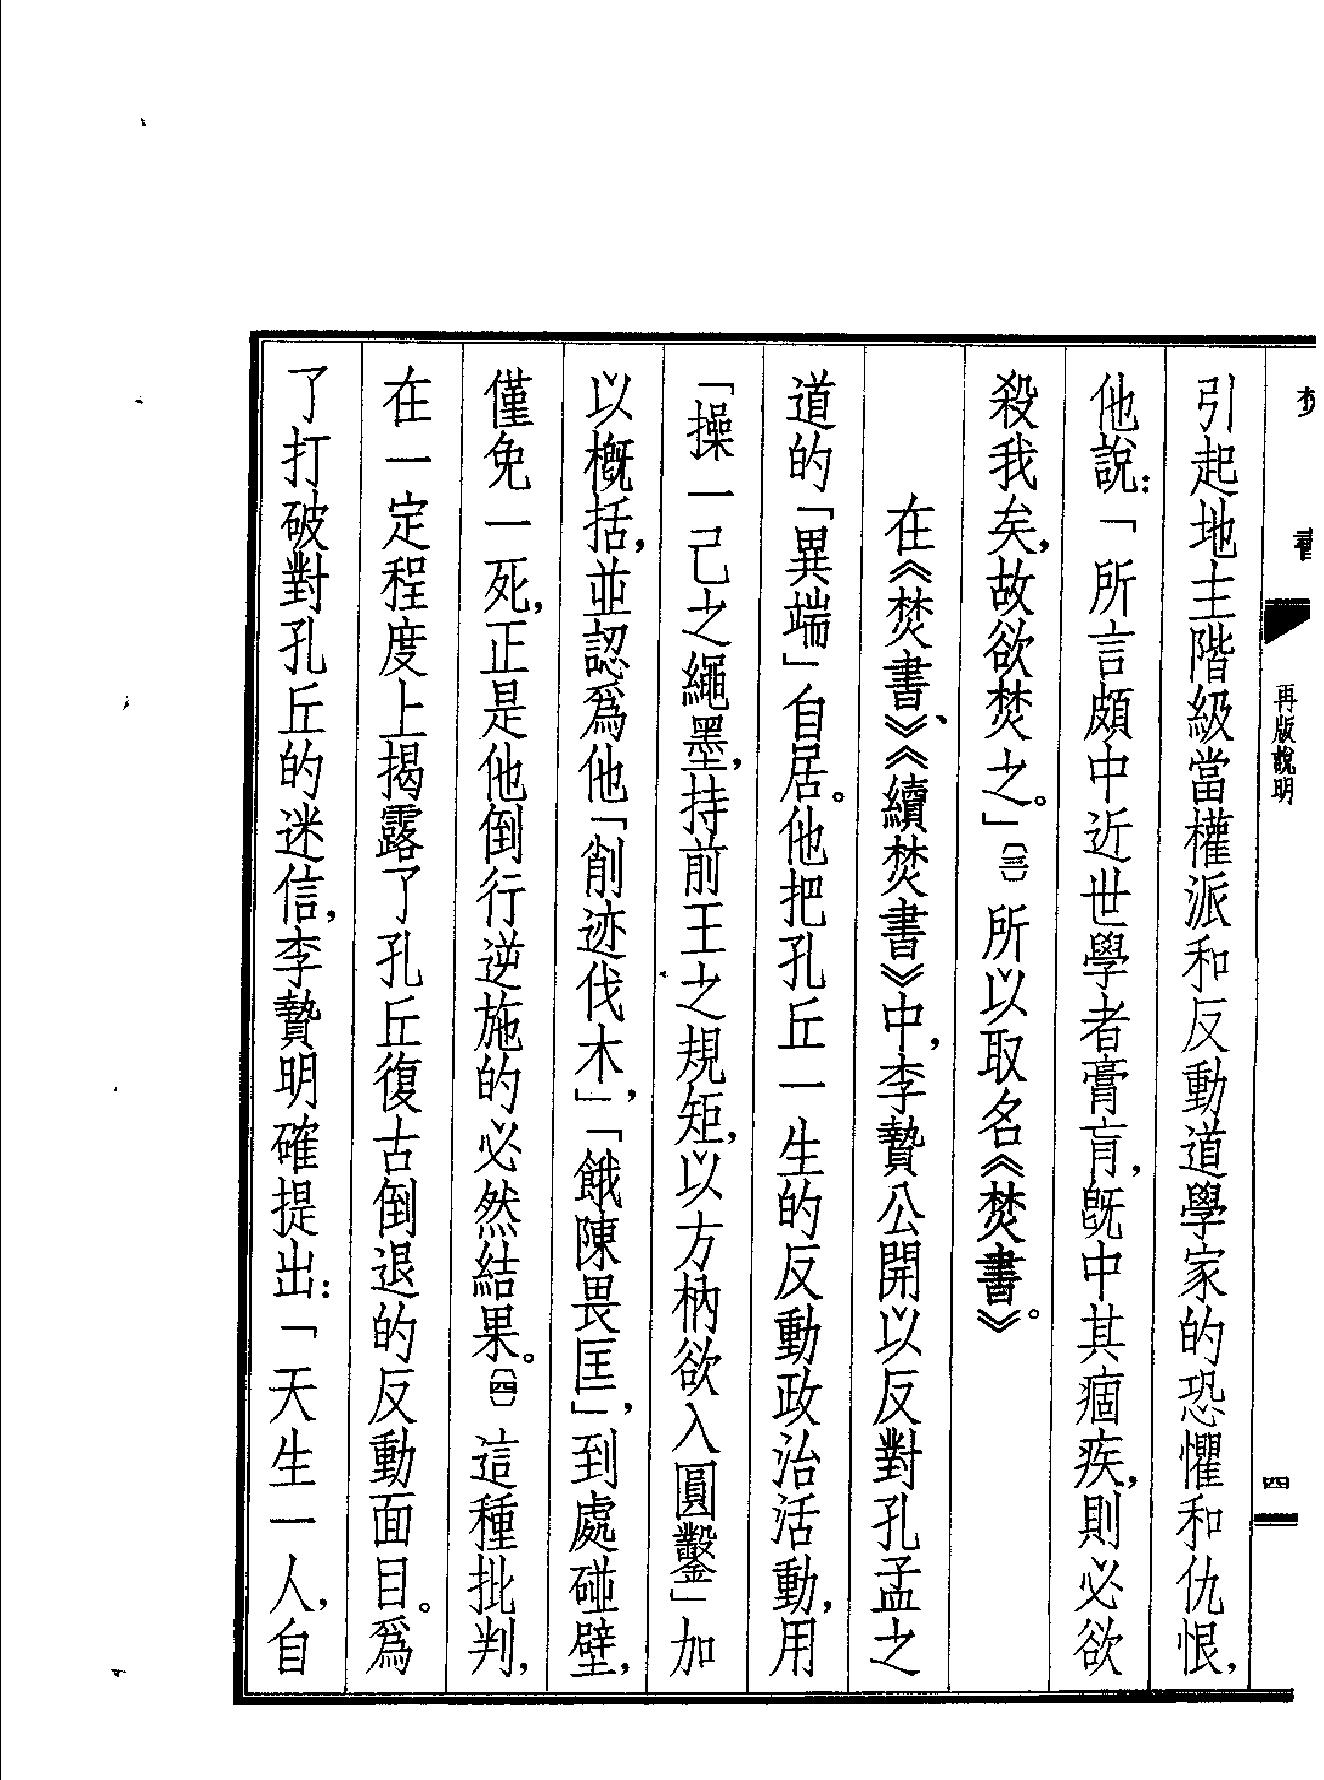 焚書
再版說明
四
引起地主階級當權派和反動道學家的恐懼和仇恨，
他說：「所言頗中近世學者膏肓，旣中其痼疾，則必欲
殺我矣，故欲焚之。」〔三〕所以取名《焚書》。
在《焚書》、《續焚書》中，李贄公開以反對孔孟之
道的「異端」自居。他把孔丘一生的反動政治活動，用
「操一己之繩墨，持前王之規矩，以方枘欲入圓鑿」加
以槪括，並認爲他「削迹伐木」，「餓陳畏匡」，到處碰壁，
僅免一死，正是他倒行逆施的必然結果。〔四〕這種批判，
在一定程度上揭露了孔丘復古倒退的反動面目。爲
了打破對孔丘的迷信，李贄明確提出：「天生一人，自